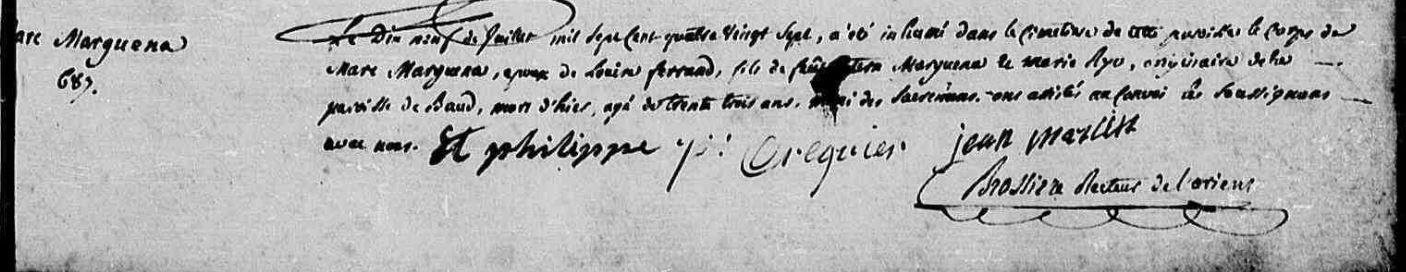 Marc Marguena
687.
Le Dix neuf de Juillet mil sept Cent quatre Vingt Sept, a été inhumé dans le Cimetiere de cette paroisse le Corps de
Marc Marguena, epoux de Louise ferrand, fils de feu Marguena et marie Ryo, originaire de la
paroisse de Baud, mort d'hier, agé de trente trois ans, muni des Sacremens. ont assistés au Convoi les Soussignans
avec nous. St philippe Creguier jean marc
Brossiere Recteur de l'orient